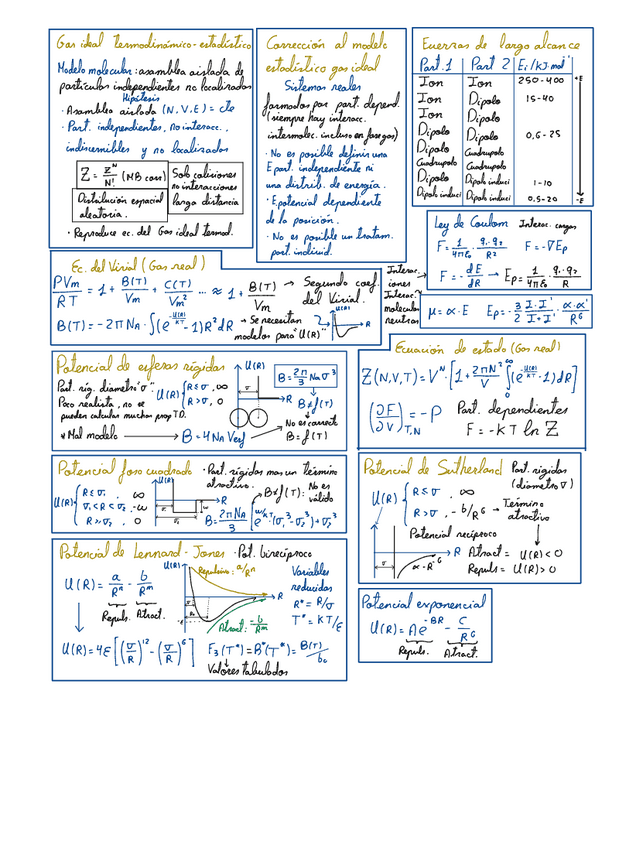 Gas ideal termodinámico-estadístico
Modelo molecular: asamblea aislada de
partículas independientes no localizadas
Hipótesis
· Asamblea aislada (N, V, E) = cte
· Part. independientes, no interacc.,
indiscernibles y no localizadas
Z = z^N / N! (MB corr)
Distribución espacial
aleatoria.
Solo colisiones
no interacciones
larga distancia
· Reproduce ec. del Gas ideal termod.
Corrección al modelo
estadístico gas ideal
Sistemas reales
formados por part. depend.
(siempre hay interacc.
intermolec. incluso en fases gas)
· No es posible definir una
E part. independiente ni
una distrib. de energía.
· E potencial dependiente
de la posición.
· No es posible un tratam.
part. individ.
Fuerzas de largo alcance
Part. 1 Part 2 Ei/KJ·mol⁻¹
Ion Ion 250-400 +E
Ion Dipolo 15-40
Ion Dipolo
Dipolo Dipolo 0,6-25
Dipolo Cuadrupolo
Cuadrupolo Cuadrupolo
Dipolo Dipolo induci 1-10
Dipolo induci Dipolo induci 0.5-20 -E
Ley de Coulom Interacc. cargas
F = 1/4πε₀ · q₁·q₂/R² F = -∇Ep
Interac-
iones
F = -dE/dR → Ep = 1/4πε₀ · q₁·q₂/R
Interac.
moleculas
neutras
μ = α·E Ep = -3/2 I·I'/I+I' · α·α'/R⁶
Ec. del Virial (Gas real)
PVm/RT = 1 + B(T)/Vm + C(T)/Vm² ... ≈ 1 + B(T)/Vm → Segundo coef.
del Virial.
B(T) = -2πNA · ∫(e^(-U(R)/KT) - 1)R²dR → Se necesitan
modelos para "U(R)" R
Potencial de esferas rígidas
Part. rig. diametro "σ"
Poco realista, no se
pueden calcular muchas prop TD.
U(R) { R≤σ, ∞
R>σ, 0
U(R) R σ
B = 2π/3 NA σ³
B≠f(T)
No es correcto
* Mal modelo → B = 4NA Vesf B = f(T)
Ecuación de estado (Gas real)
Z(N,V,T) = V^N · [1 + 2πN²/V ∫₀^∞ (e^(-U(R)/KT) - 1)dR]
(∂F/∂V)T,N = -P Part. dependientes
F = -kT ln Z
Potencial foso cuadrado · Part. rígidas mas un término
atractivo.
U(R) { R≤σ₁ ∞
σ₁<R<σ₂ -w
R>σ₂, 0
U(R) R w σ₁ σ₂
B≠f(T): No es
válido
B = 2πNA/3 [e^(w/KT)·(σ₁³-σ₂³)+σ₂³]
Potencial de Sutherland Part. rigidas
(diametro σ)
U(R) { R≤σ, ∞
R>σ, -b/R⁶ → Término
atractivo
Potencial recíproco
σ R α-R⁻⁶
Atract = U(R)<0
Repuls = U(R)>0
Potencial de Lennard-Jones · Pot. birecíproco
U(R) = a/Rⁿ - b/R^m
Repuls. Atract.
U(R) Repulsivo: a/Rⁿ
R
Atract: -b/R^m
Variables
reducidas
R* = R/σ
T* = KT/ε
U(R) = 4ε [(σ/R)¹² - (σ/R)⁶] F₃(T*) = B*(T*) = B(T)/b₀
Valores tabulados
Potencial exponencial
U(R) = Ae^(-BR) - C/R⁶
Repuls. Atract.